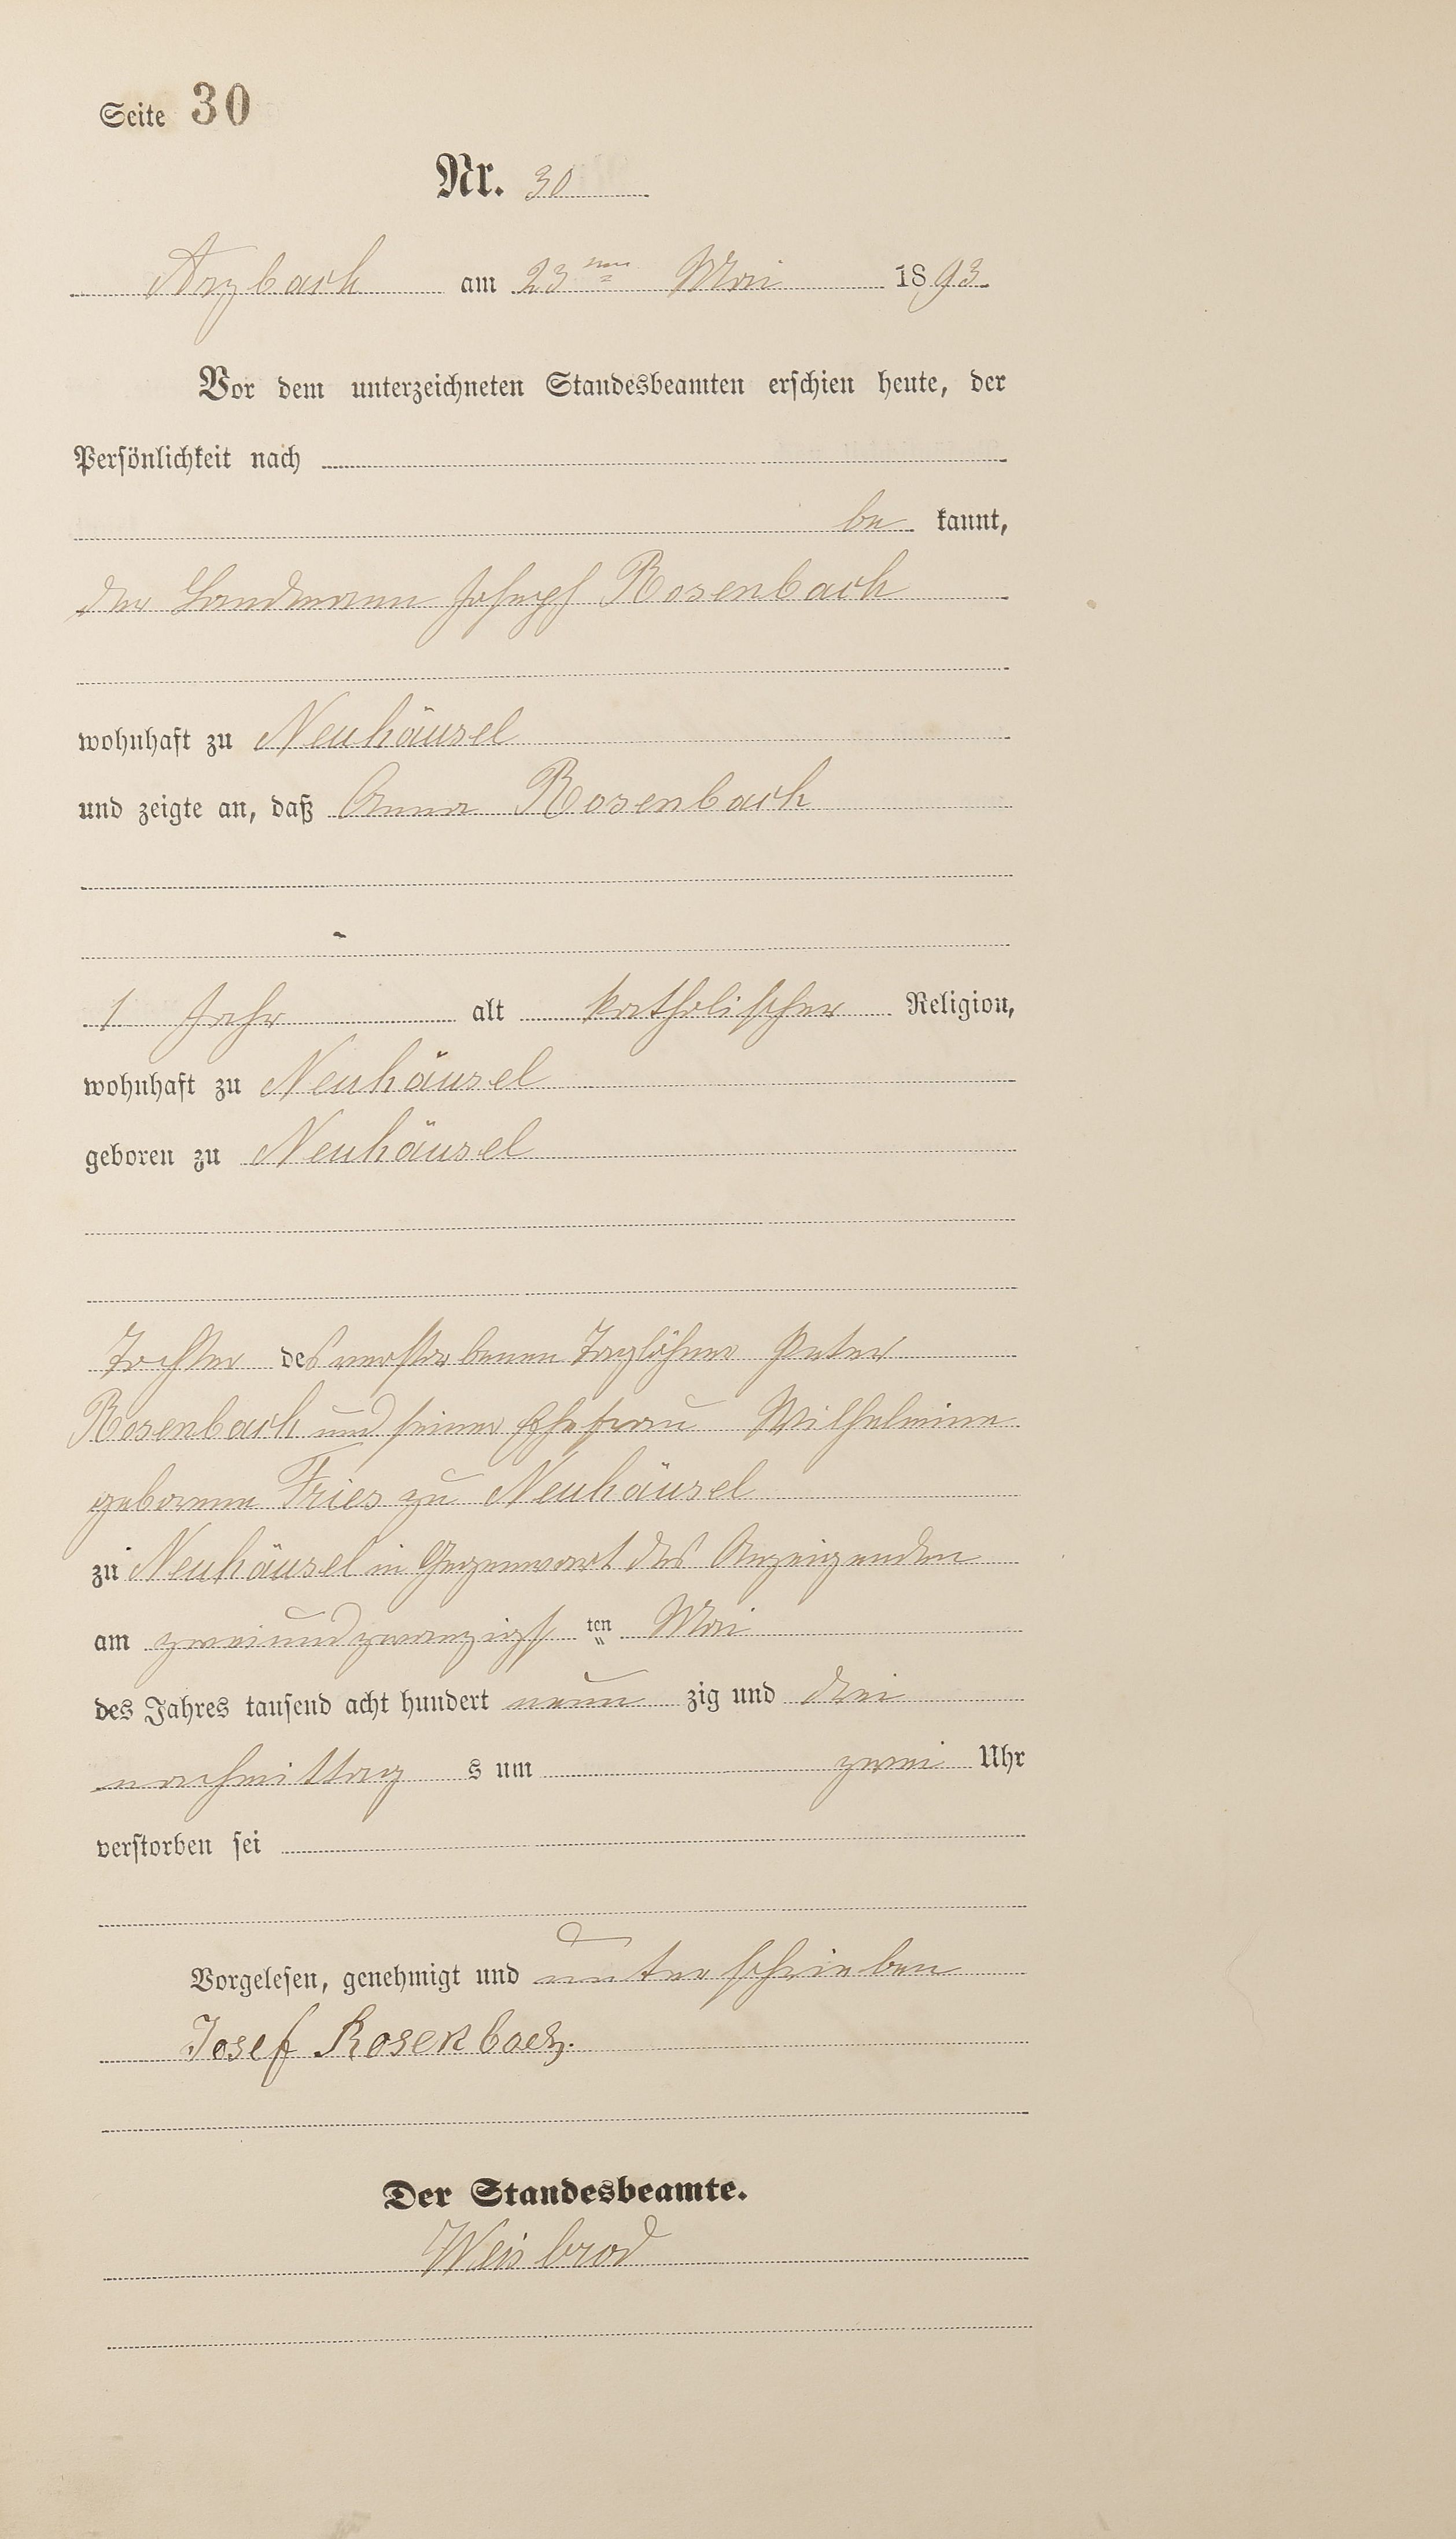 Seite 30
Nr. 30
Arzbach am 23ten Mai 1893.
Vor dem unterzeichneten Standesbeamten erschien heute, der
Persönlichkeit nach
be kannt,
der Landmann Joseph Rosenbach
wohnhaft zu Neuhäusel
und zeigte an, daß Anna Rosenbach
1 Jahr alt katholischer Religion,
wohnhaft zu Neuhäusel
geboren zu Neuhäusel
Tochter des verstorbenen Taglöhner Peter
Rosenbach und seiner Ehefrau Wilhelmine
geborene Fries zu Neuhäusel
zu Neuhäusel in Gegenwart des Anzeigenden
am zweiundzwanzigsten Mai
des Jahres tausend acht hundert neun zig und drei
nachmittag s um zwei Uhr
verstorben sei
Vorgelesen, genehmigt und unterschrieben
Josef Rosenbach.
Der Standesbeamte.
Weisbrod